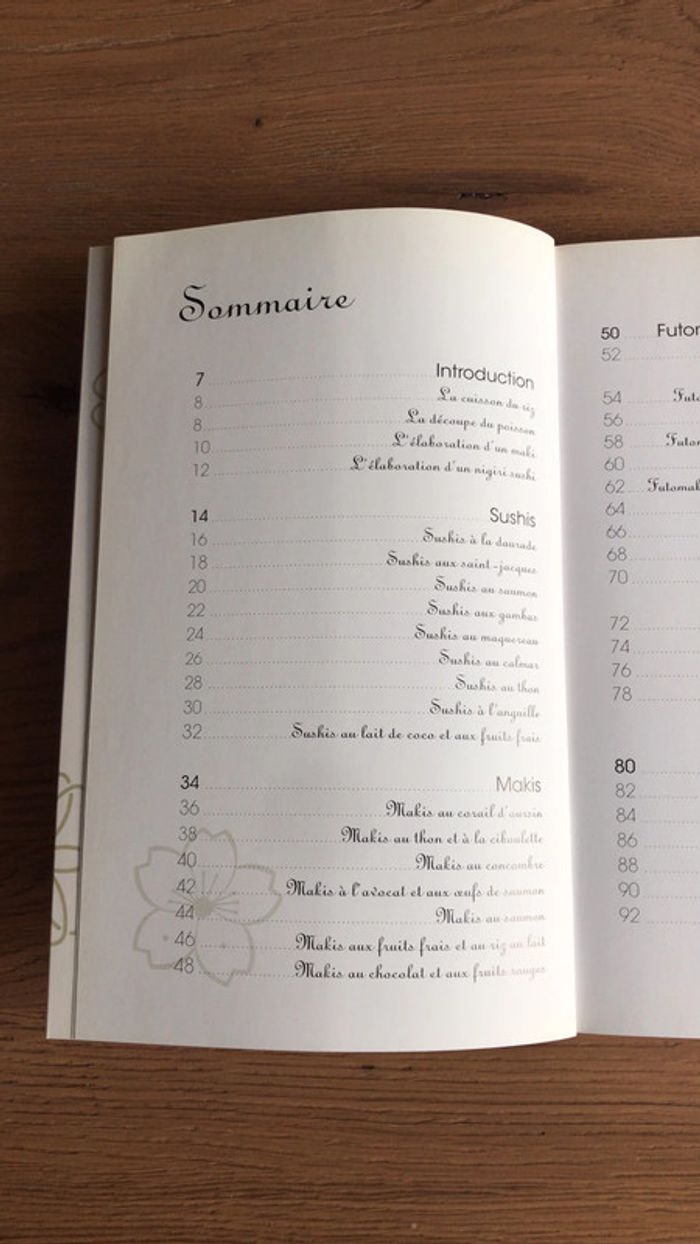 Sommaire
7 Introduction
8 La cuisson du riz
8 La découpe du poisson
10 L'élaboration d'un maki
12 L'élaboration d'un nigiri sushi
14 Sushis
16 Sushis à la daurade
18 Sushis aux saint-jacques
20 Sushis au saumon
22 Sushis aux gambas
24 Sushis au maquereau
26 Sushis au calmar
28 Sushis au thon
30 Sushis à l'anguille
32 Sushis au lait de coco et aux fruits frais
34 Makis
36 Makis au corail d'oursin
38 Makis au thon et à la ciboulette
40 Makis au concombre
42 Makis à l'avocat et aux œufs de saumon
44 Makis au saumon
46 Makis aux fruits frais et au riz au lait
48 Makis au chocolat et aux fruits rouges
50
52
54
56
58
60
62
64
66
68
70
72
74
76
78
80
82
84
86
88
90
92